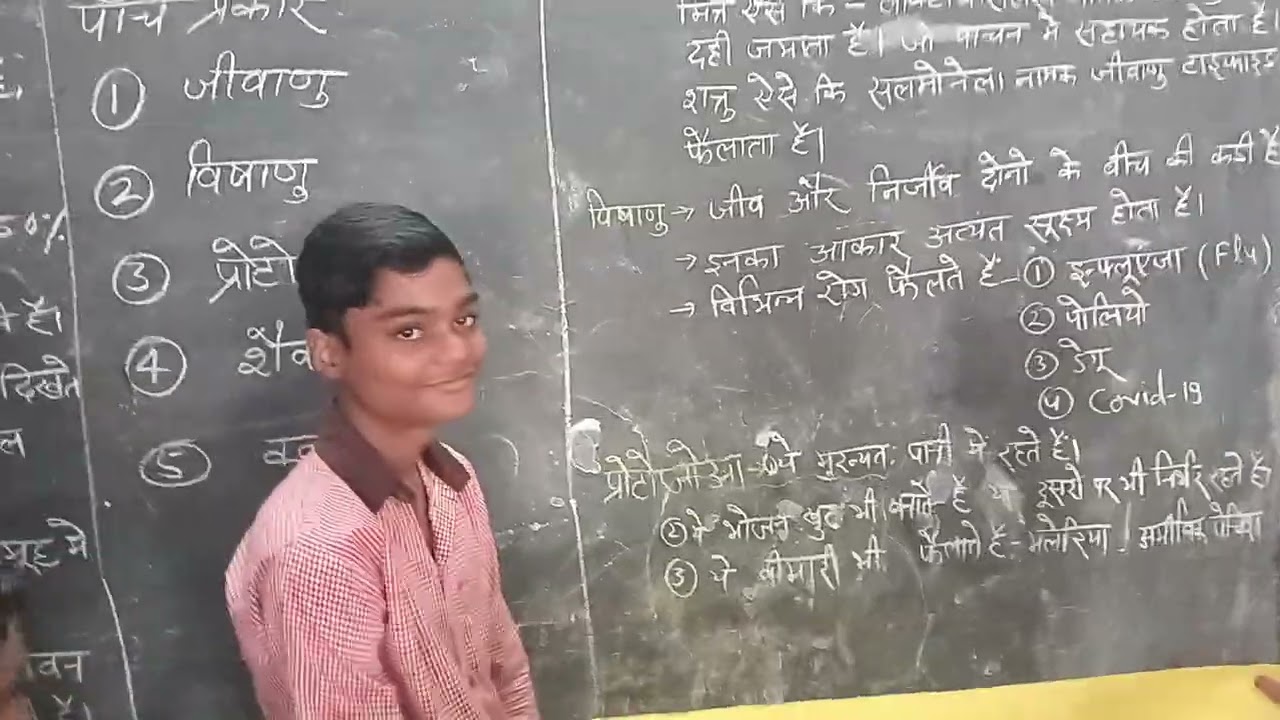 पाँच प्रकार
① जीवाणु
② विषाणु
③ प्रोटो
④ शैव
⑤
50%
है।
दिखेत
ल
मित्र ऐसे कि -
दही जमाता है। जो पाचन मे सहायक होता है।
शत्रु ऐसे कि सलमोनेला नामक जीवाणु टाइफाइड
फैलाता है।
विषाणु → जीव और निर्जीव दोनो के बीच की कडी है
→ इनका आकार अत्यंत सूक्ष्म होता है।
→ विभिन्न रोग फैलते हैं - ① इन्फ्लूएंजा (Flu)
② पोलियो
③ डेंगू
④ Covid-19
प्रोटोजोआ - ① ये मुख्यतः पानी मे रहते हैं।
② ये भोजन खुद भी बनाते हैं दूसरो पर भी निर्भर रहते हैं
③ ये बीमारी भी फैलाते हैं - मलेरिया